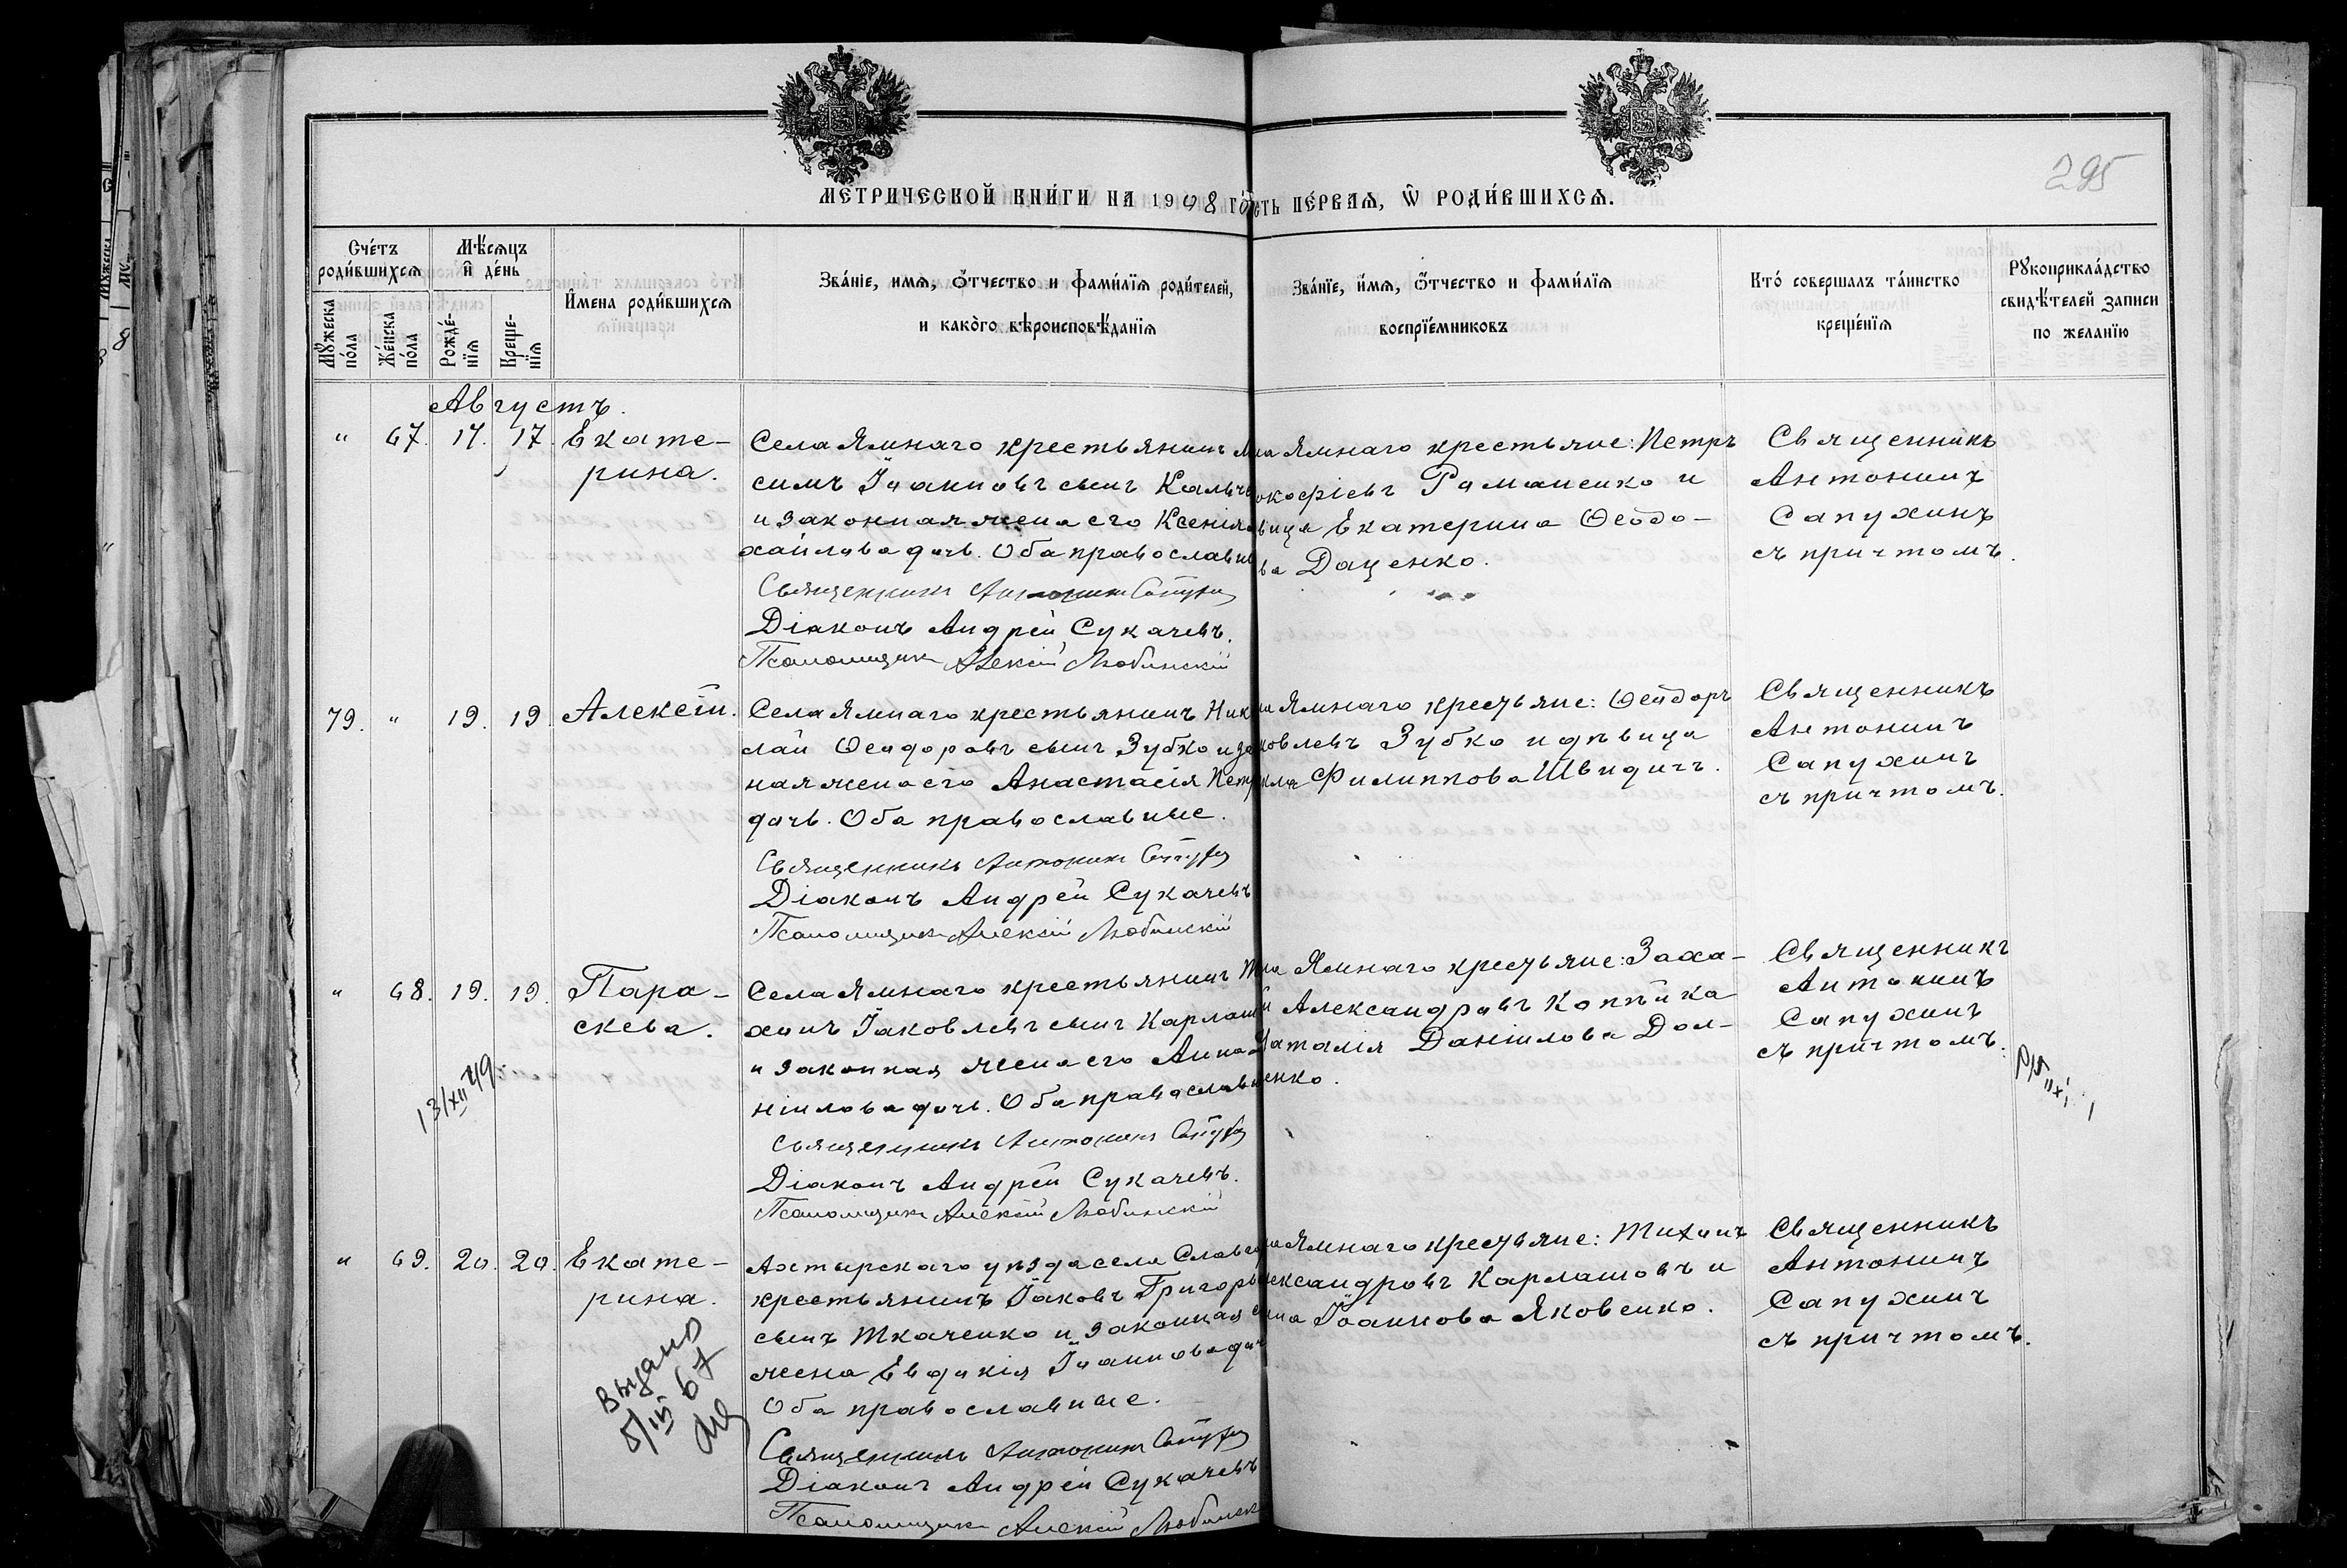 295
МЕТРИЧЕСКОЙ КНИ́ГИ НА 1908 ГО
СТЬ ПЕ́РВАЯ, Ѿ РОДИ́ВШИХСЯ.
Сче́тъ роди́вшихся
Мѣ́сяцъ и де́нь
Имена роди́вшихся
Зва́нїе, имя, о́тчество и фами́лїя роди́телей,
и како́го вѣроисповѣ́данїя
Зва́нїе, и́мя, о́тчество и фами́лїя
воспрїе́мниковъ
Кто́ совершалъ та́инство
креще́нїя
Рукоприкла́дство
свидѣ́телей записи
по желанїю
Мужеска по́ла
Же́нска по́ла
Рожде́нїя
Креще́нїя
Августъ.
" 67. 17. 17. Екате-
рина.
Села Ямнаго крестьянинъ
симъ Іоанновъ сынъ
и законная жена его Ксенія
хайлова дочь. Оба православн
Священникъ Антонинъ
Діаконъ Андрей Сукачевъ.
Псаломщикъ Алексій Любинскій
на Ямнаго крестьяне: Петръ
окофіевъ Романенко и
вица Екатерина Ѳеодо-
ва Даценко.
Священникъ
Антонинъ
Сапухинъ
съ причтомъ.
79. " 19. 19. Алексѣй.
Села Ямнаго крестьянинъ Ник
лай Ѳеодоровъ сынъ Зубко и за
ная жена его Анастасія Петр
дочь. Оба православные.
Священникъ Антонинъ
Діаконъ Андрей Сукачевъ
Псаломщикъ Алексій Любинскій
на Ямнаго крестьяне: Ѳеодоръ
ковлевъ Зубко и дѣвица
кла Филиппова Швидичъ.
Священникъ
Антонинъ
Сапухинъ
съ причтомъ.
" 68. 19. 19. Пара-
скева.
13/XII 49
Села Ямнаго крестьянинъ
хонъ Іаковлевъ сынъ Карлаш
и законная жена его Анна
ніилова дочь. Оба православн
Священникъ Антонинъ
Діаконъ Андрей Сукачевъ.
Псаломщикъ Алексій Любинскій
на Ямнаго крестьяне: Заха-
й Александровъ Копѣйка
Наталія Даніилова Дол-
енко.
Священникъ
Антонинъ
Сапухинъ
съ причтомъ.
" 69. 20. 20. Екате-
рина.
Выдано
5/III 67
Ахтырскаго уѣзда села Славго
крестьянинъ Іаковъ Григорь
сынъ Ткаченко и законная
жена Евдокія Іоаннова доч
Оба православные.
Священникъ Антонинъ
Діаконъ Андрей Сукачевъ
Псаломщикъ Алексій Любинск
на Ямнаго крестьяне: Тихонъ
ександровъ Карлашовъ и
на Іоаннова Яковенко.
Священникъ
Антонинъ
Сапухинъ
съ причтомъ.